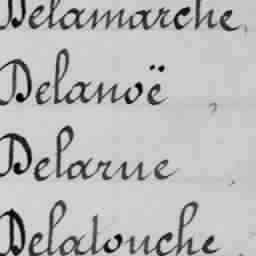 Delamarche
Delanoë
Delarue
Delatouche